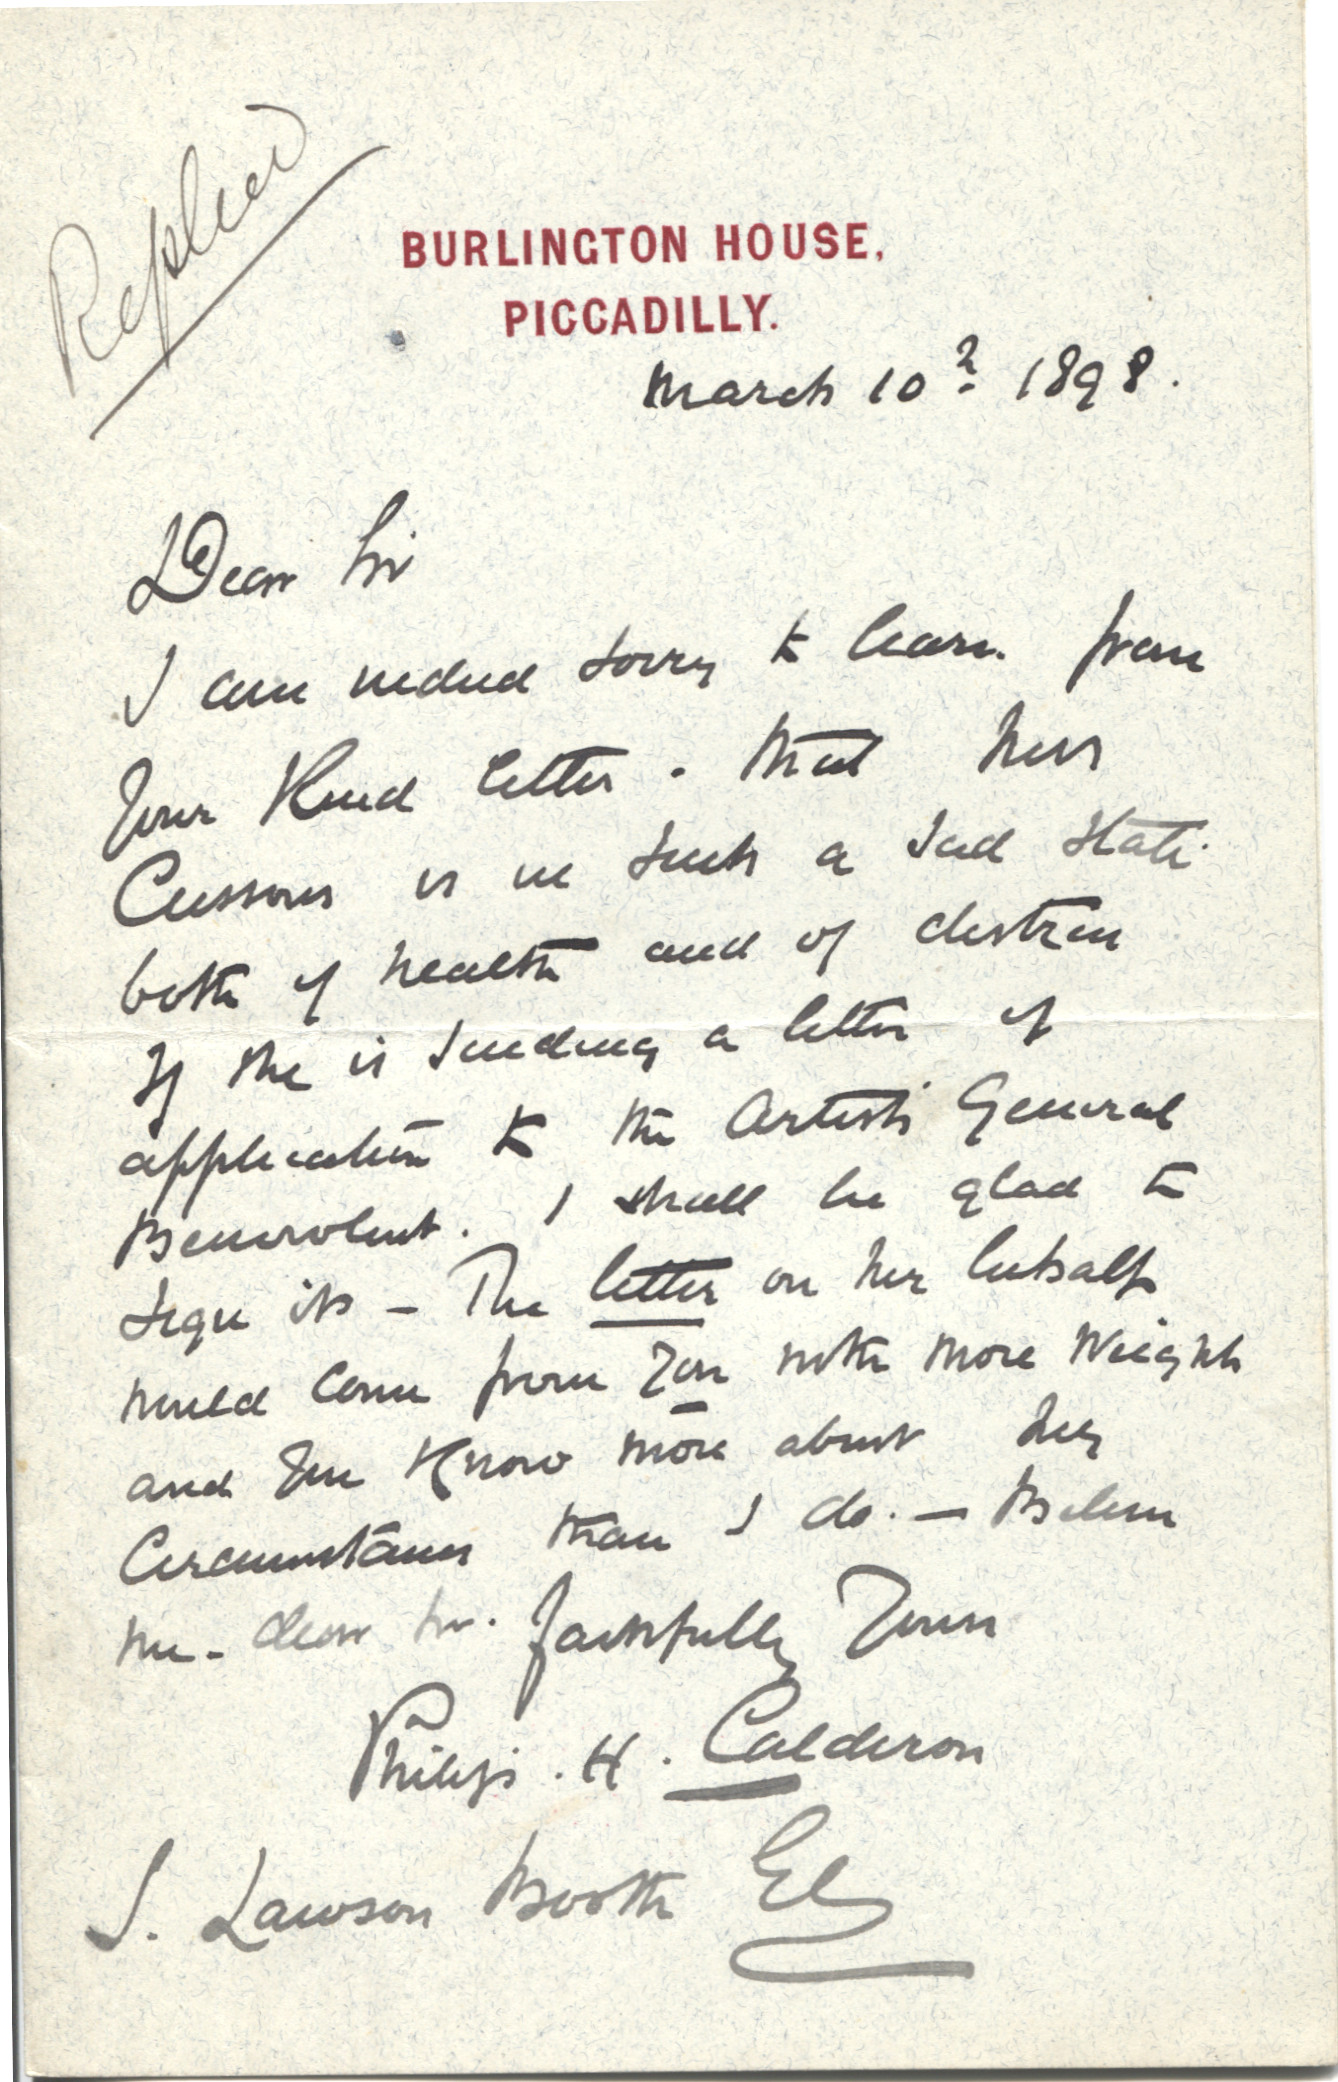 Replied
BURLINGTON HOUSE,
PICCADILLY.
March 10th 1898.
Dear Sir
I am indeed sorry to learn from
Your Kind letter - that Miss
Cussons is in such a sad state
both of health and of distress
If she is sending a letter of
application to the Artists General
Benevolent. I shall be glad to
sign it - The letter on her behalf
would come from You with more Weight
and You Know more about her
Circumstances than I do. - Believe
me - dear Sir. Faithfully Yours
Philip . H . Calderon
S. Lawson Booth Esq